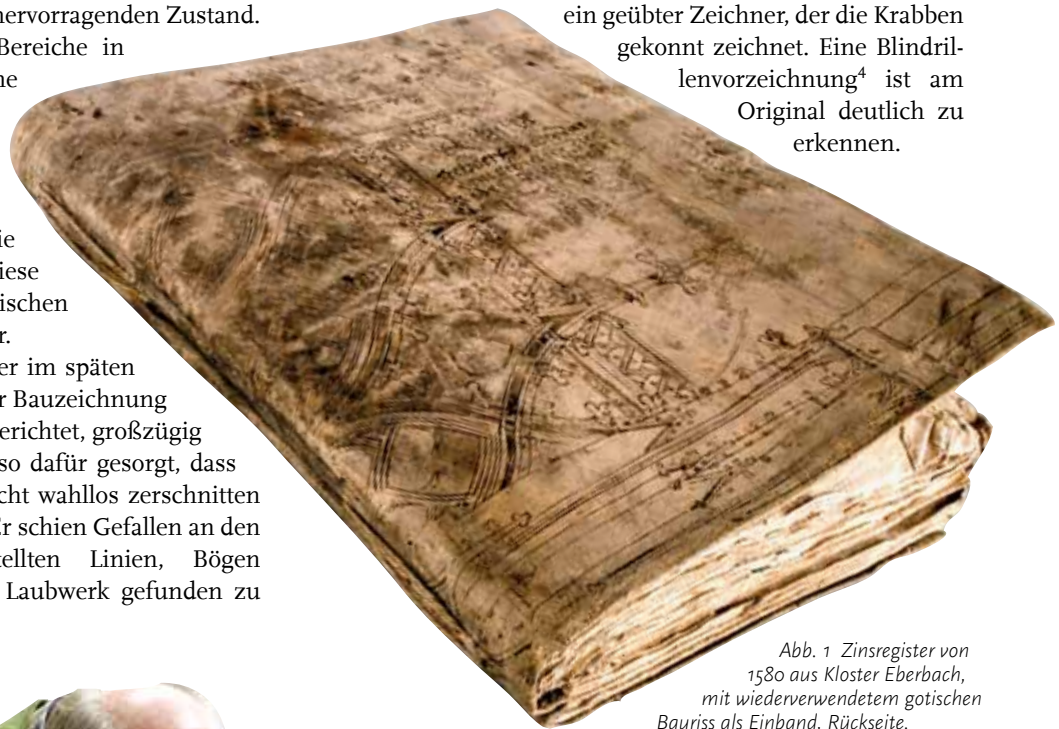 hervorragenden Zustand.
Bereiche in
ne
ie
iese
ischen
r.
er im späten
r Bauzeichnung
erichtet, großzügig
so dafür gesorgt, dass
cht wahllos zerschnitten
Er schien Gefallen an den
ellten Linien, Bögen
Laubwerk gefunden zu
ein geübter Zeichner, der die Krabben
gekonnt zeichnet. Eine Blindril-
lenvorzeichnung⁴ ist am
Original deutlich zu
erkennen.
Abb. 1 Zinsregister von
1580 aus Kloster Eberbach,
mit wiederverwendetem gotischen
Bauriss als Einband. Rückseite.